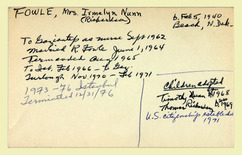 FOWLE, Mrs. Irmelyn Nunn
(Richardson)
b. Feb 5, 1940
Beach, N. Dak.
To Gaziantep as nurse Sept 1962
Married R. Fowle June 1, 1964
Terminated Aug 1965
To Ist. Feb 1966 - to Gaz.
Furlough Nov 1970 - Feb 1971
1973-76 Istanbul
Terminated 12/31/76
Children adopted
Timothy 1965
Thomas Richardson 1969
U.S. citizenship
1971